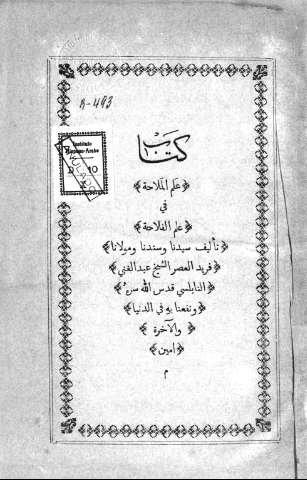 B-493
كتاب
﴿علم الملاحة﴾
في
علم الفلاحة
﴿تأليف سيدنا وسندنا ومولانا﴾
﴿فريد العصر الشيخ عبد الغني﴾
﴿النابلسي قدس الله سره﴾
﴿ونفعنا به في الدنيا﴾
﴿والآخرة﴾
﴿امين﴾
م
Instituto
Hispano-Arabe